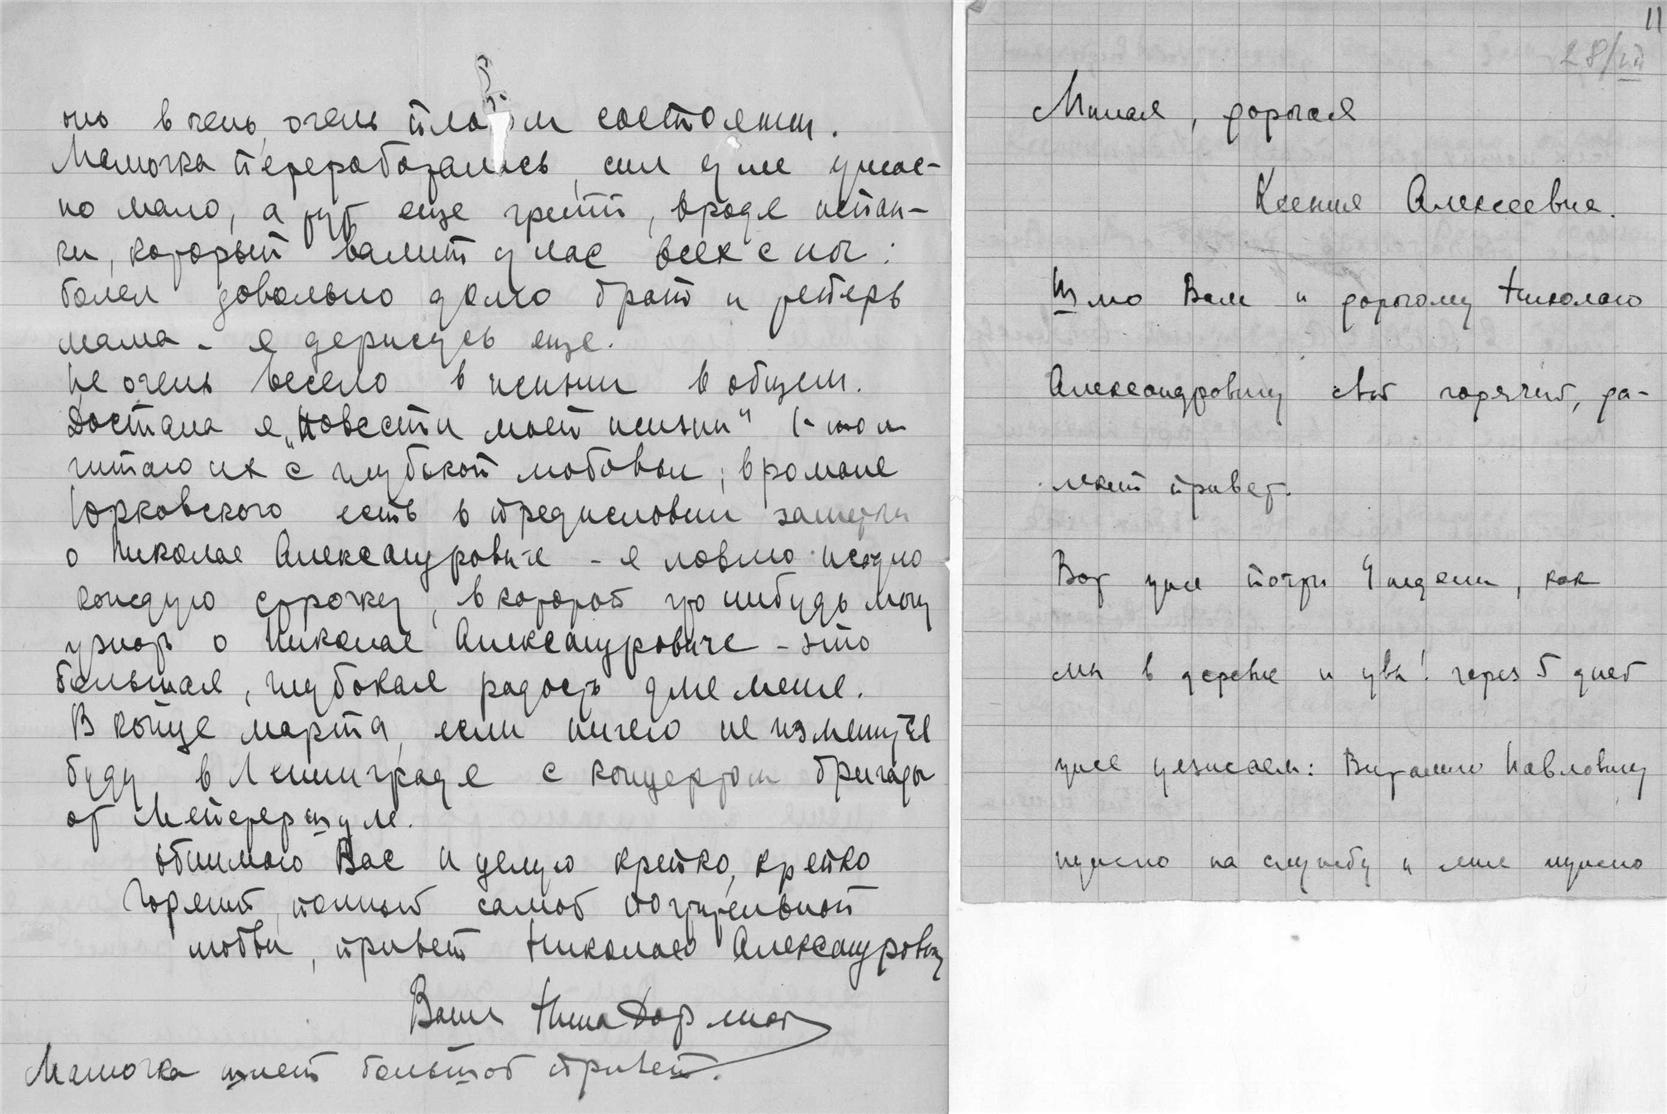 но в чень, очень плохом состоянии.
Мамочка переработалась, сил уже ужас-
но мало, а тут еще грипп, вроде испан-
ки, который валит у нас всех с ног:
болел довольно долго брат и теперь
мама - я держусь еще.
Не очень весело в жизни в общем.
Достала я „Повести моей жизни"
читаю их с глубокой любовью; в романе
Юрковского есть в предисловии заметки
о Николае Александровиче - я ловлю жадно
каждую строчку, в которой что нибудь могу
узнать о Николае Александровиче - это
большая, глубокая радость для меня.
В конце марта, если ничего не изменится
буду в Ленинграде с концертом бригады
от Мейерхольда.
Обнимаю Вас и целую крепко, крепко
Горячий, полный самой почтительной
любви, привет Николаю Александровичу
Ваша Нина Дорлиак
Мамочка шлет большой привет.
11
28/VII
Милая, дорогая
Ксения Алексеевна.
Шлю Вам и дорогому Николаю
Александровичу свой горячий, да-
лекий привет.
Вот уже почти 4 недели, как
мы в деревне и увы! через 5 дней
уже уезжаем: Виталию Павловичу
нужно на службу и мне нужно